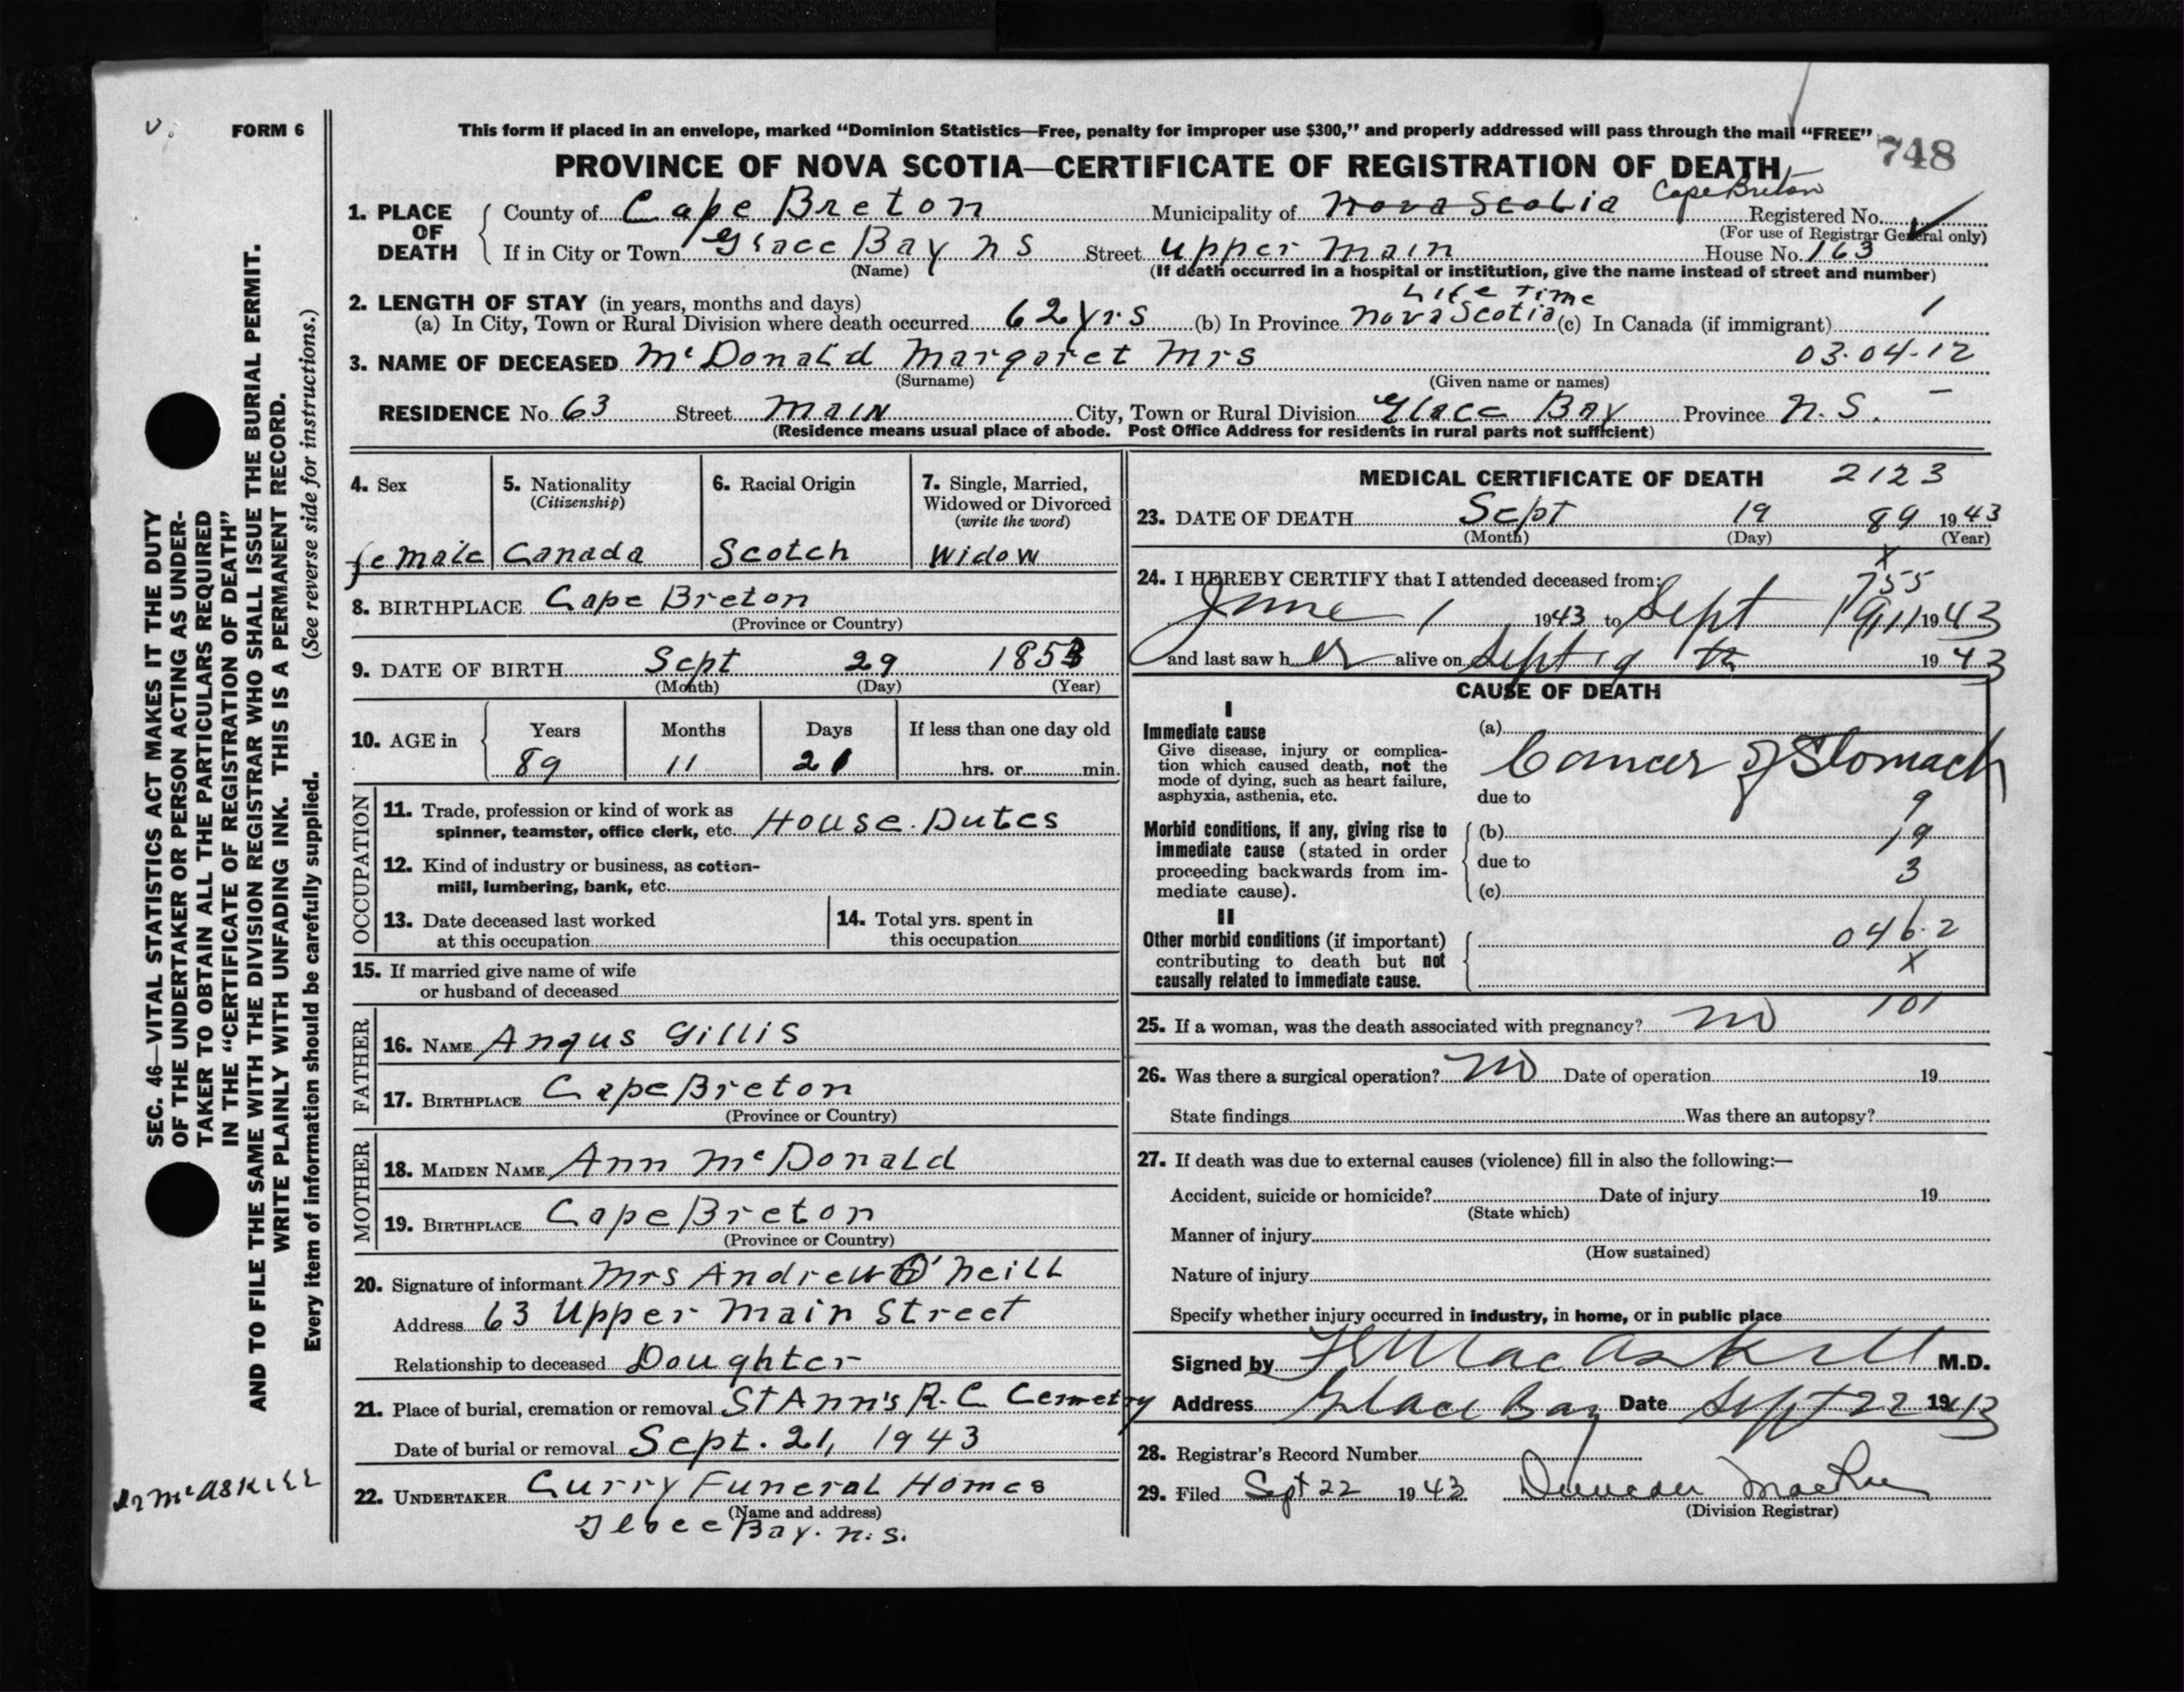 v.
FORM 6
This form if placed in an envelope, marked “Dominion Statistics—Free, penalty for improper use $300,” and properly addressed will pass through the mail “FREE”
748
PROVINCE OF NOVA SCOTIA—CERTIFICATE OF REGISTRATION OF DEATH
Cape Breton
1. PLACE OF DEATH
County of Cape Breton Municipality of Nova Scotia Registered No.
(For use of Registrar General only)
If in City or Town Glace Bay N S Street Upper Main House No. 163
(Name) (If death occurred in a hospital or institution, give the name instead of street and number)
2. LENGTH OF STAY (in years, months and days)
Life Time
(a) In City, Town or Rural Division where death occurred 62 yrs (b) In Province Nova Scotia (c) In Canada (if immigrant) 1
3. NAME OF DECEASED McDonald Margaret Mrs 03.04-12
(Surname) (Given name or names)
RESIDENCE No. 63 Street Main City, Town or Rural Division Glace Bay Province N.S.
(Residence means usual place of abode. Post Office Address for residents in rural parts not sufficient)
4. Sex
female
5. Nationality
(Citizenship)
Canada
6. Racial Origin
Scotch
7. Single, Married,
Widowed or Divorced
(write the word)
Widow
8. BIRTHPLACE Cape Breton
(Province or Country)
9. DATE OF BIRTH Sept 29 1853
(Month) (Day) (Year)
10. AGE in
Years Months Days If less than one day old
89 11 21 hrs. or min.
OCCUPATION
11. Trade, profession or kind of work as
spinner, teamster, office clerk, etc. House Dutes
12. Kind of industry or business, as cotton-
mill, lumbering, bank, etc.
13. Date deceased last worked
at this occupation
14. Total yrs. spent in
this occupation
15. If married give name of wife
or husband of deceased
FATHER
16. NAME Angus Gillis
17. BIRTHPLACE Cape Breton
(Province or Country)
MOTHER
18. MAIDEN NAME Ann McDonald
19. BIRTHPLACE Cape Breton
(Province or Country)
20. Signature of informant Mrs Andrew O'Neill
Address 63 Upper Main Street
Relationship to deceased Doughter
21. Place of burial, cremation or removal St Ann's R.C. Cemetry
Date of burial or removal Sept. 21, 1943
22. UNDERTAKER Curry Funeral Homes
(Name and address)
Glace Bay. N.S.
MEDICAL CERTIFICATE OF DEATH 2123
23. DATE OF DEATH Sept 19 89 1943
(Month) (Day) (Year)
X
24. I HEREBY CERTIFY that I attended deceased from: 755
June 1 1943 to Sept 19 1943
and last saw her alive on Sept 19 th 1943
CAUSE OF DEATH
I
Immediate cause
Give disease, injury or complica-
tion which caused death, not the
mode of dying, such as heart failure,
asphyxia, asthenia, etc.
(a)
Cancer of Stomach
due to
9
Morbid conditions, if any, giving rise to
immediate cause (stated in order
proceeding backwards from im-
mediate cause).
(b) 19
due to 3
(c)
II
Other morbid conditions (if important)
contributing to death but not
causally related to immediate cause.
046.2
X
101
25. If a woman, was the death associated with pregnancy? no
26. Was there a surgical operation? no Date of operation 19
State findings Was there an autopsy?
27. If death was due to external causes (violence) fill in also the following:—
Accident, suicide or homicide? Date of injury 19
(State which)
Manner of injury
(How sustained)
Nature of injury
Specify whether injury occurred in industry, in home, or in public place
Signed by MacAskill M.D.
Address Glace Bay Date Sept 22 1943
28. Registrar's Record Number
29. Filed Sept 22 1943 Duncan
(Division Registrar)
SEC. 46—VITAL STATISTICS ACT MAKES IT THE DUTY
OF THE UNDERTAKER OR PERSON ACTING AS UNDER-
TAKER TO OBTAIN ALL THE PARTICULARS REQUIRED
IN THE “CERTIFICATE OF REGISTRATION OF DEATH”
AND TO FILE THE SAME WITH THE DIVISION REGISTRAR WHO SHALL ISSUE THE BURIAL PERMIT.
WRITE PLAINLY WITH UNFADING INK. THIS IS A PERMANENT RECORD.
Every item of information should be carefully supplied. (See reverse side for instructions.)
Dr McAskill